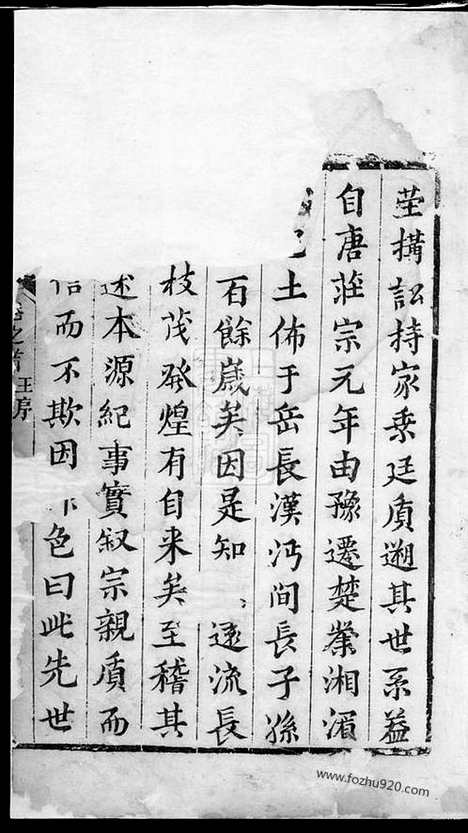 茔搆訟持家乗廷质遡其世系益
自唐莊宗元年由豫遷楚黎湘湄
土佈于岳長漢沔間長子孫
百餘嵗矣因是知 逺流長
枝茂發煌有自来矣至稽其
述本源紀事實叙宗親質而
信而不欺因 色曰此先世
之首 王序
www.fozhu920.com